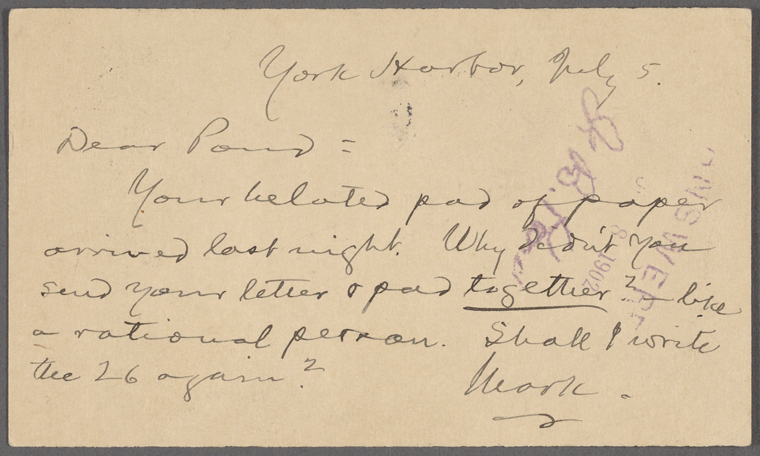 York Harbor, July 5.
Dear Pond =
Your belated pad of paper
arrived last night. Why didn't you
send your letter & pad together? — like
a rational person. Shall I write
the 26 again?
Mark.
J. B. Pond
ANSWERED
8 1902